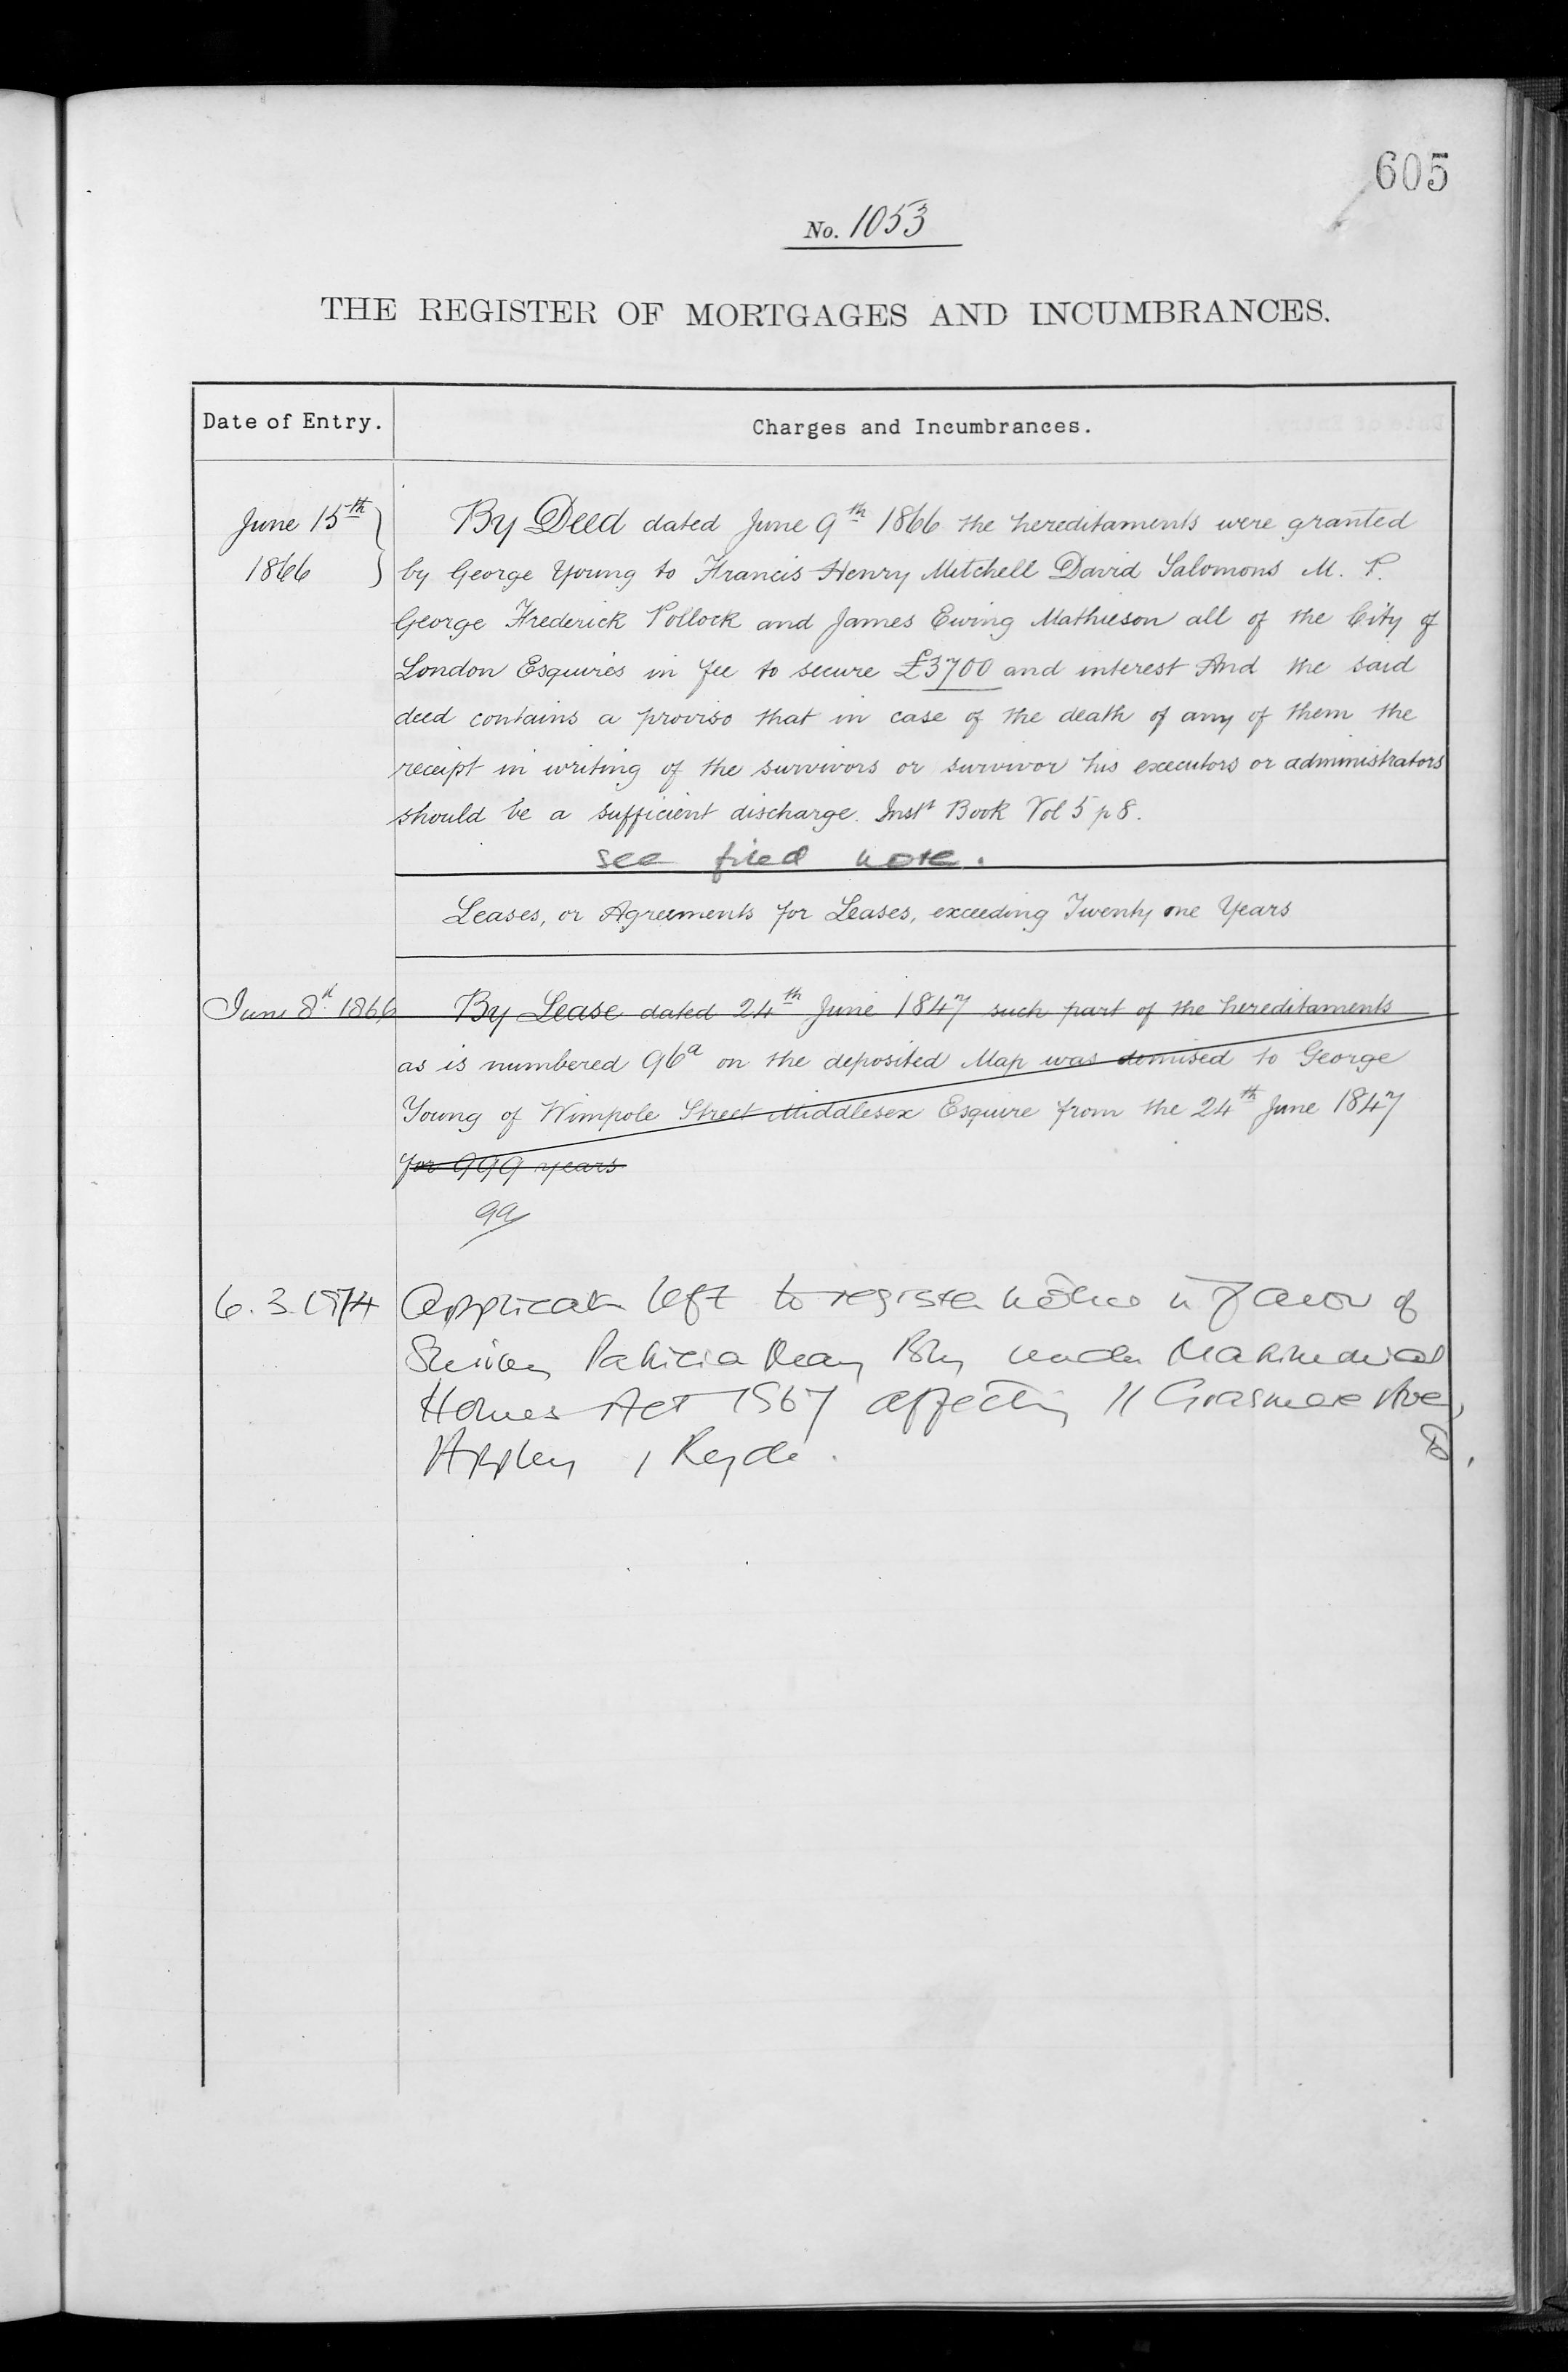 605
No. 1053
THE REGISTER OF MORTGAGES AND INCUMBRANCES.
Date of Entry.
Charges and Incumbrances.
June 15th 1866
By Deed dated June 9th 1866 the hereditaments were granted
by George Young to Francis Henry Mitchell David Salomons M. P.
George Frederick Pollock and James Ewing Mathieson all of the City of
London Esquires in fee to secure £3700 and interest And the said
deed contains a proviso that in case of the death of any of them the
receipt in writing of the survivors or survivor his executors or administrators
should be a sufficient discharge. Inst Book Vol 5 p 8.
see filed note.
Leases, or Agreements for Leases, exceeding Twenty one Years
June 8th 1866
By Lease dated 24th June 1847 such part of the hereditaments
as is numbered 96a on the deposited Map was demised to George
Young of Wimpole Street Middlesex Esquire from the 24th June 1847
for 999 years
6.3.1974
Applicatn left to register notice in favour of
Patricia under Matrimonial
Homes Act 1967 affecting 11 Grasmere Ave,
Appley, Ryde.